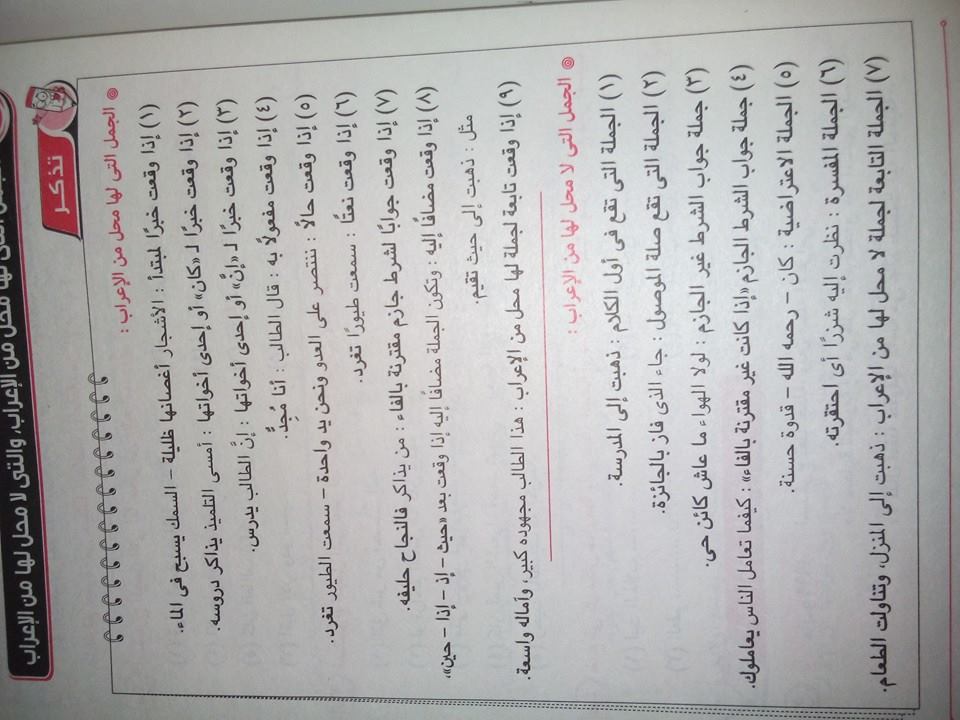 لها محل من الإعراب، والتى لا محل لها من الإعراب
تذكر
الجمل التى لها محل من الإعراب :
(١) إذا وقعت خبرًا لمبتدأ : الأشجار أغصانها ظليلة - السمك يسبح فى الماء.
(٢) إذا وقعت خبرًا لـ «كان» أو إحدى أخواتها : أمسى التلميذ يذاكر دروسه.
(٣) إذا وقعت خبرًا لـ «إنَّ» أو إحدى أخواتها : إنَّ الطالب يدرس.
(٤) إذا وقعت مفعولًا به : قال الطالب : أنا مُجِدٌّ.
(٥) إذا وقعت حالًا : ننتصر على العدو ونحن يد واحدة - سمعت الطيور تغرد.
(٦) إذا وقعت نعتًا : سمعت طيورًا تغرد.
(٧) إذا وقعت جوابًا لشرط جازم مقترنة بالفاء : من يذاكر فالنجاح حليفه.
(٨) إذا وقعت مضافًا إليه : وتكون الجملة مضافًا إليه إذا وقعت بعد «حيث - إذ - إذا - حين»،
مثل : ذهبت إلى حيث تقيم.
(٩) إذا وقعت تابعة لجملة لها محل من الإعراب : هذا الطالب مجهوده كبير، وآماله واسعة.
الجمل التى لا محل لها من الإعراب :
(١) الجملة التى تقع فى أول الكلام : ذهبت إلى المدرسة.
(٢) الجملة التى تقع صلة الموصول : جاء الذى فاز بالجائزة.
(٣) جملة جواب الشرط غير الجازم : لولا الهواء ما عاش كائن حى.
(٤) جملة جواب الشرط الجازم «إذا كانت غير مقترنة بالفاء» : كيفما تعامل الناس يعاملوك.
(٥) الجملة الاعتراضية : كان - رحمه الله - قدوة حسنة.
(٦) الجملة المفسرة : نظرت إليه شزرًا أى احتقرته.
(٧) الجملة التابعة لجملة لا محل لها من الإعراب : ذهبت إلى المنزل، وتناولت الطعام.